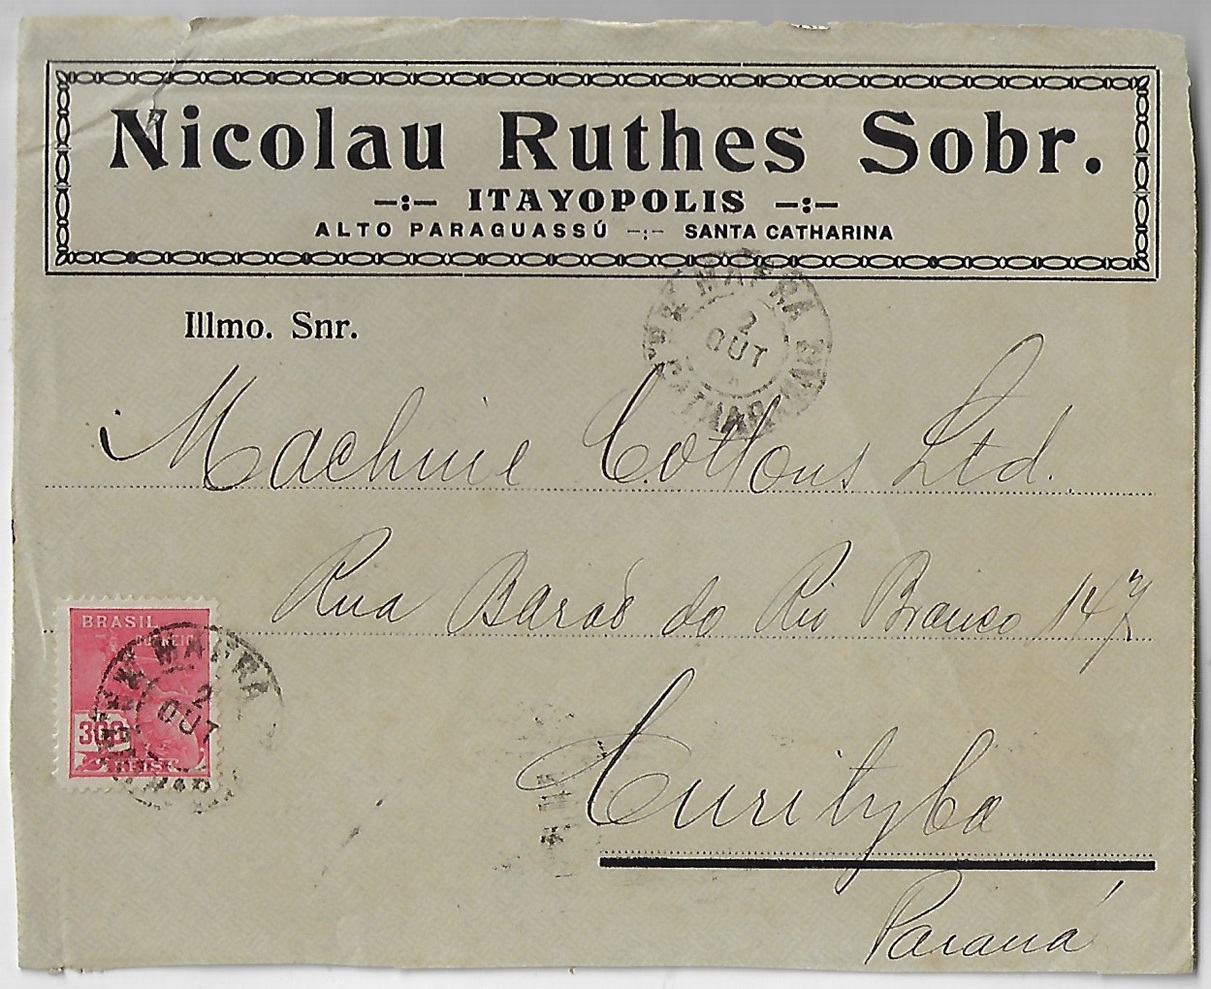 Nicolau Ruthes Sobr.
—:— ITAYOPOLIS —:—
ALTO PARAGUASSÚ —:— SANTA CATHARINA
MAFRA
2
OUT
Illmo. Snr.
Machine Cottons Ltd.
Rua Barão do Rio Branco 147
BRASIL
CORREIO
300
REIS
MAFRA
2
OUT
Curityba
Paraná